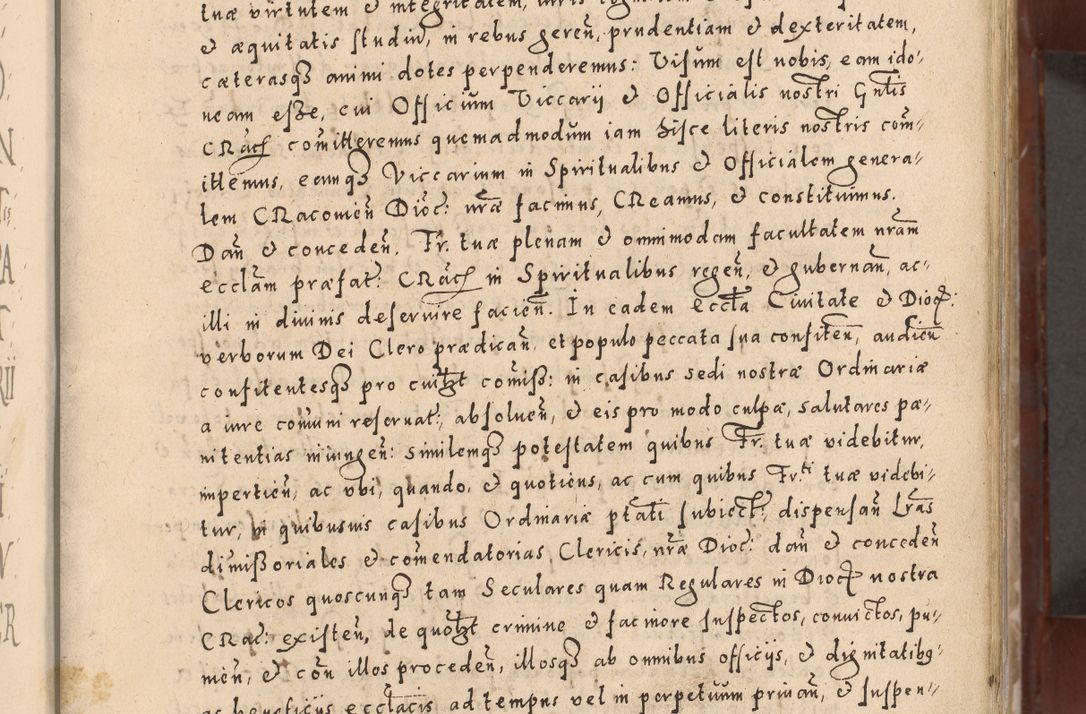 tuæ virtutem & integritatem, iuris
& æquitatis studiū, in rebus gereñ, prudentiam & dexteritatem,
cæterasqʒ animi dotes perpenderemus: Visum est nobis, eam ido⸗
neam esße, cui Officium Viccarij & Officialis nostri Gñtis
CRacȝ com̃itteremus quemadmodum iam hisce literis nostris com̃⸗
ittemus, eamqʒ Viccarium in Spiritualibus & Officialem genera⸗
lem CRacouieñ Diœc: nr̃æ facimus, CReamus, & constituimus.
Dañ & concedeñ. Fr. tuæ plenam & omnimodam facultatem nr̃am
eccl̃am præfat: CRacȝ in Spiritualibus regeñ, & gubernañ, ac⸗
illi in diuinis deseruire facieñ. In eadem eccl̃a Ciuitate & Diocȝ:
verborum Dei Clero prædicañ, et populo peccata sua confiteñ, audieñ
confitentesqʒ pro cuiȝt com̃iß: in casibus sedi nostræ Ordinariæ
a iure com̃uni reseruat:, absolueñ, & eis pro modo culpæ, salutares pæ⸗
nitentias iniungeñ: similemqʒ potestatem quibus Fr. tuæ videbitur,
impertieñ, ac vbi, quando, & quotiens, ac cum quibus Fr.ti tuæ videbi⸗
tur, in quibusuis casibus Ordinariæ ptãti subiect:, dispensañ Lr̃as
dimißoriales & com̃endatorias Clericis, nr̃æ Dioc: dañ & concedeñ
Clericos quoscunqʒ tam Seculares quam Regulares in Diocȝ nostra
CRac: existeñ, de quoȝt crimine & facinore suspectos, conuictos, pu⸗
nieñ, & coñ illos procedeñ, illosqʒ ab omnibus officijs, & dignitatibꝰ⸗
ac beneficijs eccl̃acis ad tempus vel in perpetuum priuañ, & suspen⸗